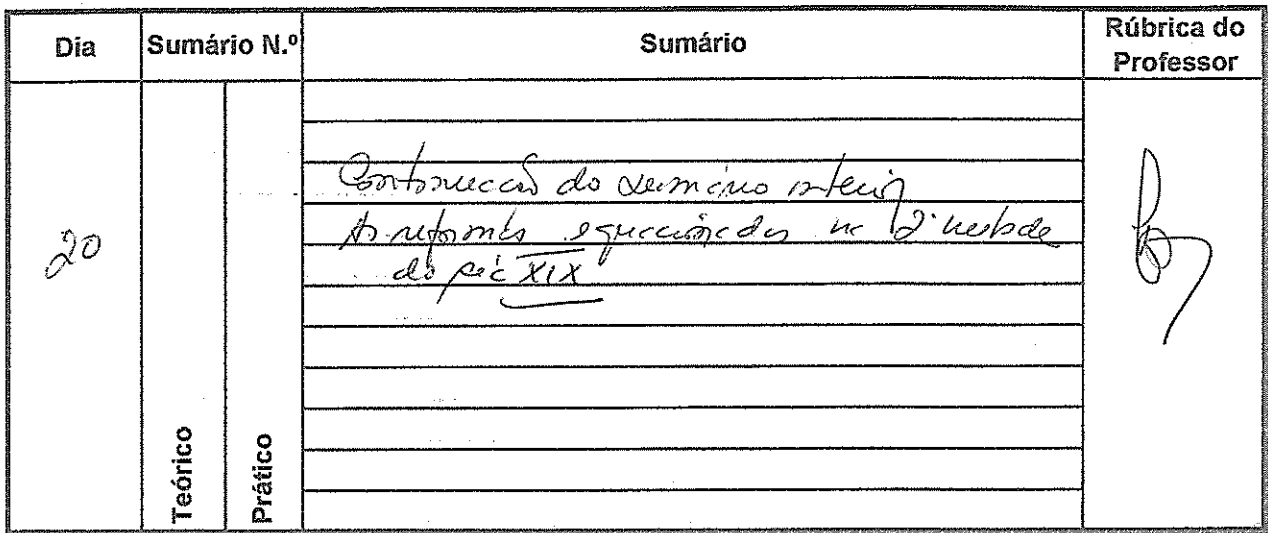 Dia Sumário N.º Sumário Rúbrica do Professor
Teórico Prático
20
Continuação do sumário anterior
As reformas equacionadas na 2ª metade
do séc XIX